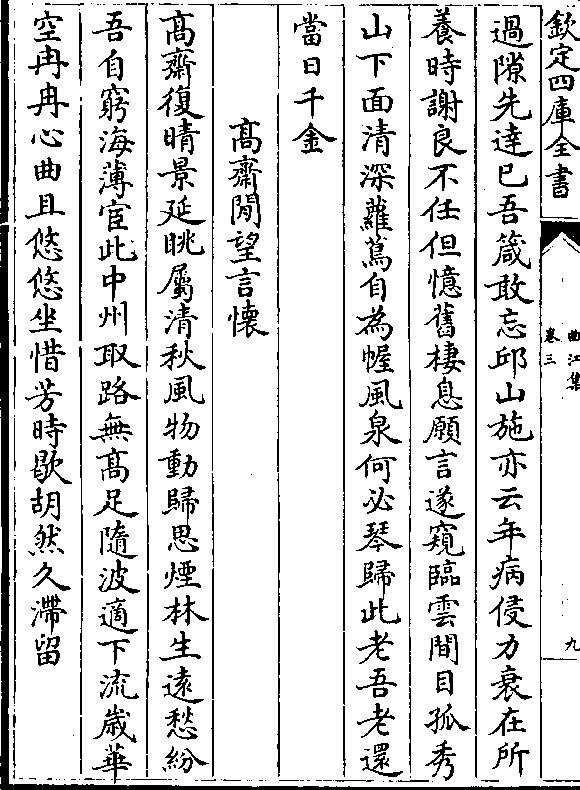 欽定四庫全書
曲江集
卷三
九
過隙先達已吾箴敢忘邱山施亦云年病侵力衰在所
養時謝良不任但憶舊棲息願言遂窺臨雲間目孤秀
山下面清深蘿蔦自為幄風泉何必琴歸此老吾老還
當日千金
高齋閒望言懷
高齋復晴景延眺屬清秋風物動歸思煙林生遠愁紛
吾自窮海薄宦此中州取路無高足隨波適下流歳華
空冉冉心曲且悠悠坐惜芳時歇胡然久滯留